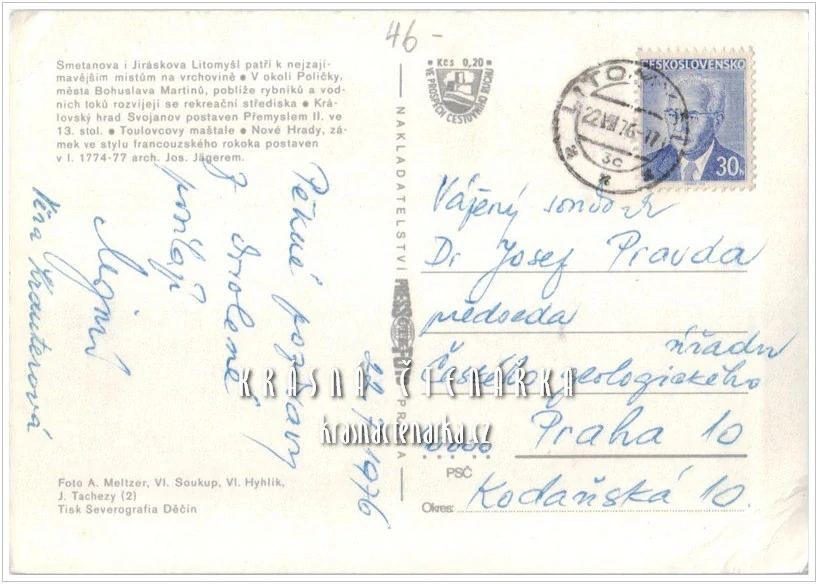 46-
Smetanova i Jiráskova Litomyšl patří k nejzají-
mavějším místům na vrchovině • V okolí Poličky,
města Bohuslava Martinů, poblíže rybníků a vod-
ních toků rozvíjejí se rekreační střediska • Krá-
lovský hrad Svojanov postaven Přemyslem II. ve
13. stol. • Toulovcovy maštale • Nové Hrady, zá-
mek ve stylu francouzského rokoka postaven
v l. 1774-77 arch. Jos. Jägerem.
Kčs 0,20
VE PROSPĚCH CESTOVNÍHO RUCHU
ČESKOSLOVENSKO
30h
22.VIII.76-17
3c
Pěkné pozdravy
z dovolené
posílají
Věra Krauterová
22.7.1976
NAKLADATELSTVÍ PRESSFOTO PRAHA
Vážený soudruh
Dr Josef Pravda
předseda
úřadu
Českého geologického
Praha 10
PSČ
Kodaňská 10.
Okres:
KRÁSNÁ ČTENÁŘKA
krasnactenarka.cz
Foto A. Meltzer, Vl. Soukup, Vl. Hyhlík,
J. Tachezy (2)
Tisk Severografia Děčín